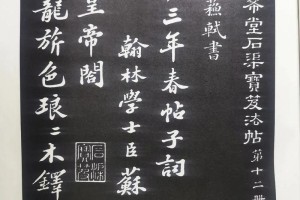 帝堂石渠寶笈法帖第十二冊
蘇軾書
三年春帖子詞
翰林學士臣蘇
皇帝閣
龍旂色琅二木鐸